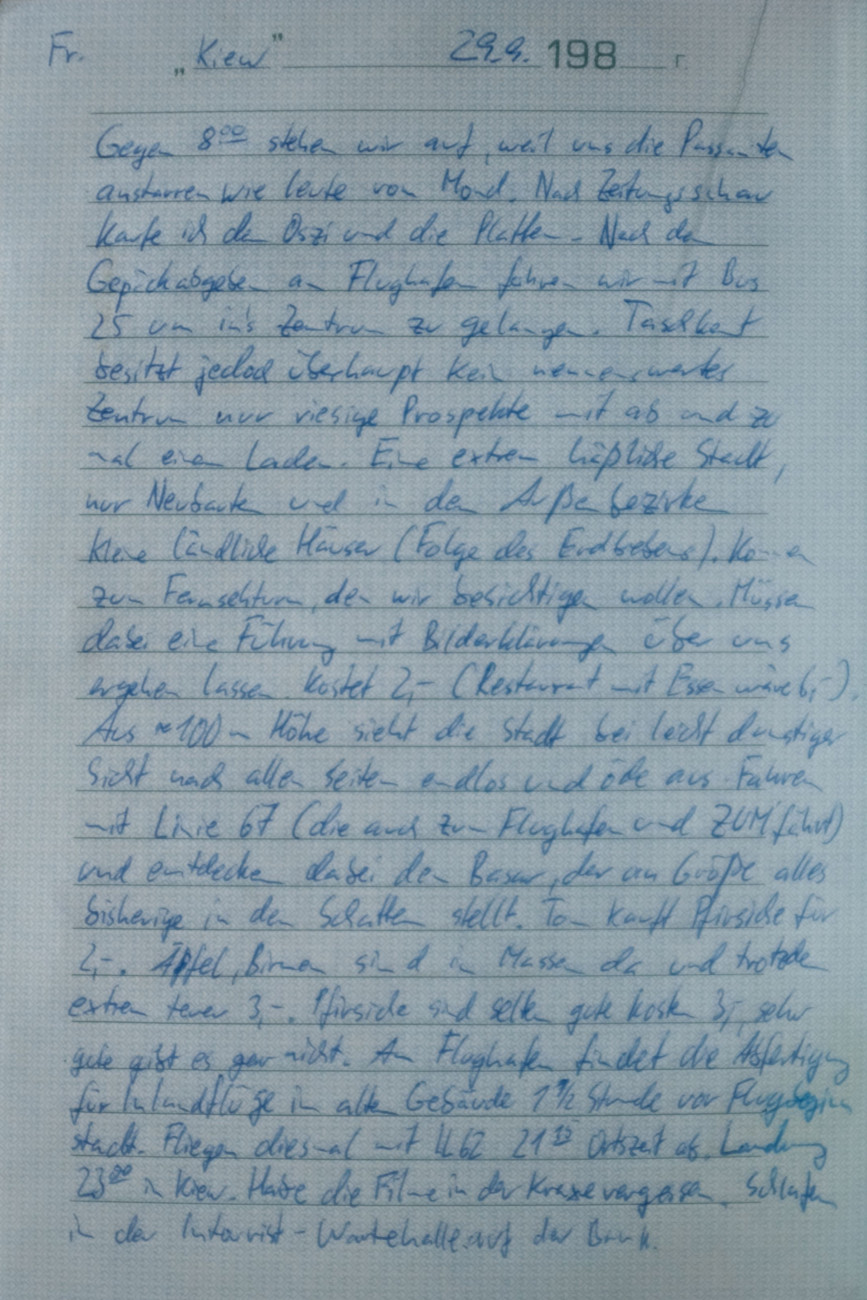 Fr. „Kiew" 29.9. 198 г.
Gegen 8⁰⁰ stehen wir auf, weil uns die Passanten
anstarren wie Leute vom Mond. Nach Zeitungsschau
kaufe ich den Oszi und die Platten. Nach dem
Gepäckabgeben am Flughafen fahren wir mit Bus
25 um in's Zentrum zu gelangen. Taschkent
besitzt jedoch überhaupt kein nennenswertes
Zentrum nur riesige Prospekte mit ab und zu
mal einem Laden. Eine extrem häßliche Stadt,
nur Neubauten und in den Außenbezirken
kleine ländliche Häuser (Folge des Erdbebens). Kommen
zum Fernsehturm, den wir besichtigen wollen. Müssen
dabei eine Führung mit Bilderklärungen über uns
ergehen lassen. Kostet 2,- (Restaurant mit Essen wäre 6,-).
Aus ≈100m Höhe sieht die Stadt bei leicht dunstiger
Sicht nach allen Seiten endlos und öde aus. Fahren
mit Linie 67 (die auch zum Flughafen und ZUM fährt)
und entdecken dabei den Basar, der an Größe alles
bisherige in den Schatten stellt. Tom kauft Pfirsiche für
2,-. Äpfel, Birnen sind in Massen da und trotzdem
extrem teuer 3,-. Pfirsiche sind selten gute kosten 3,-, sehr
gute gibt es gar nicht. Am Flughafen findet die Abfertigung
für Inlandflüge im alten Gebäude 1 1/2 Stunde vor Flugbeginn
statt. Fliegen diesmal mit IL62 21¹⁵ Ortszeit ab. Landung
23⁰⁰ in Kiew. Habe die Filme in der Kraxe vergessen. Schlafen
in der Intourist-Wartehalle auf der Bank.